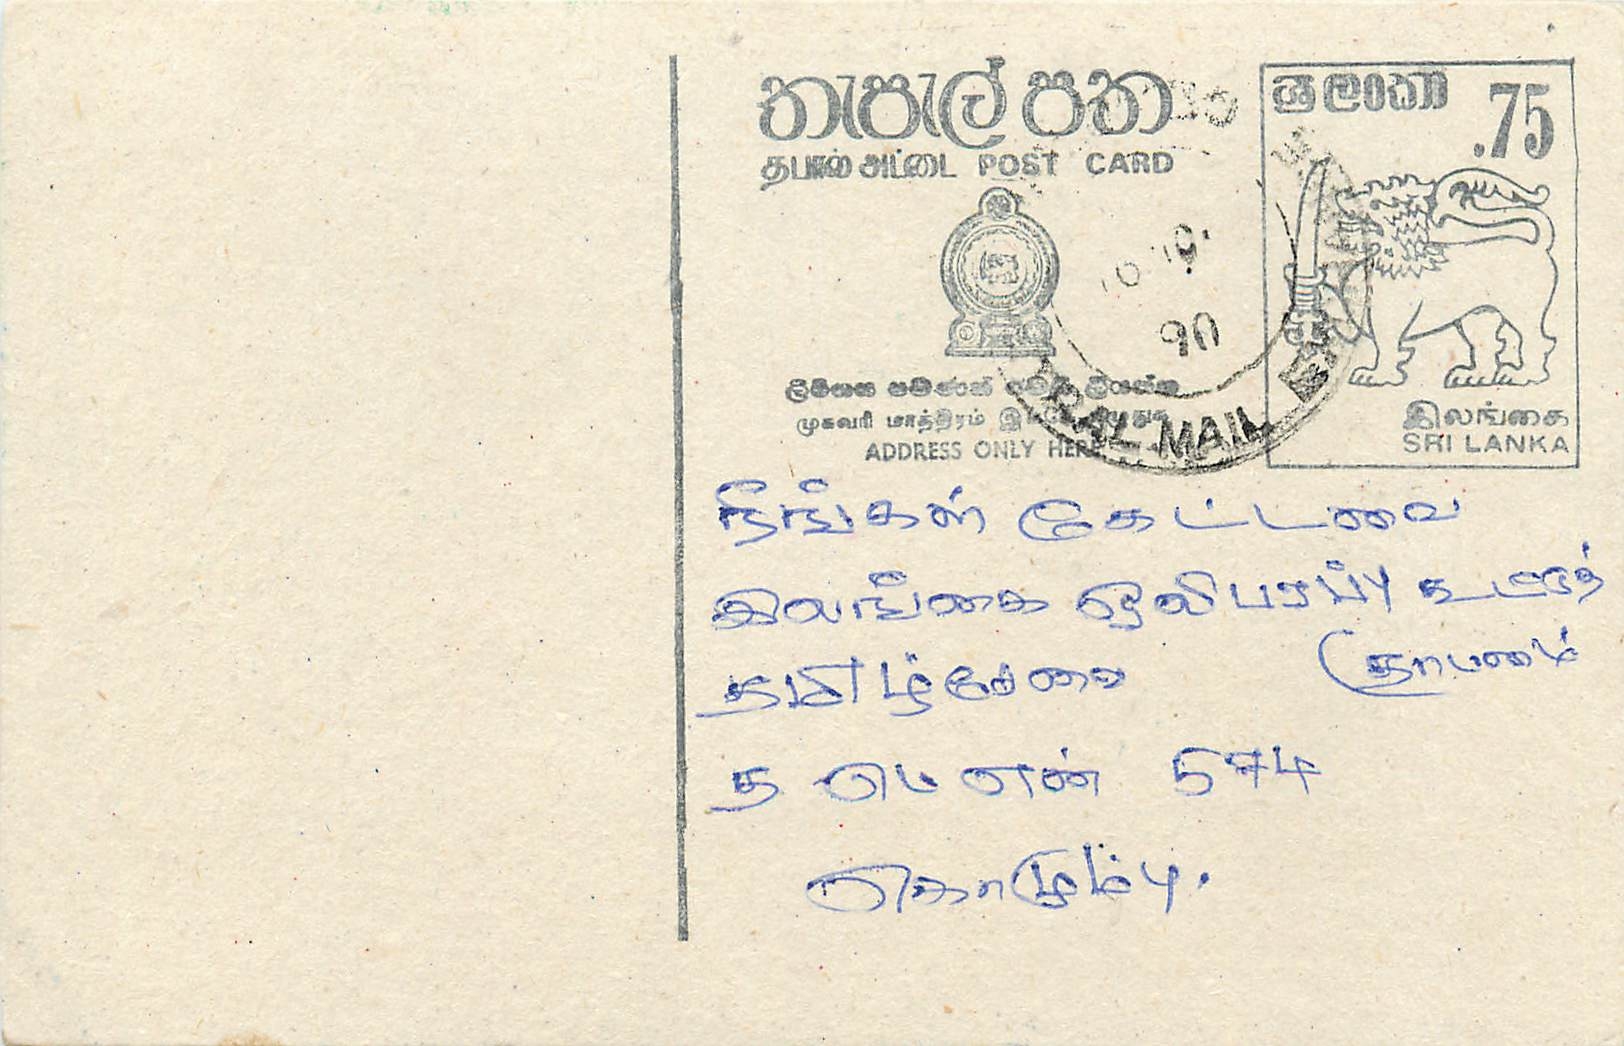 තැපැල් පත
தபால் அட்டை POST CARD
ශ්‍රී ලංකා .75
90
ලිපිනය පමණක්
முகவரி மாத்திரம்
ADDRESS ONLY HERE
RAL MAIL
இலங்கை
SRI LANKA
நீங்கள் கேட்டவை
இலங்கை ஒலிபரப்பு கூட்டுத்
தாபனம்
தமிழ்சேவை
த பெ எண் 574
கொழும்பு.